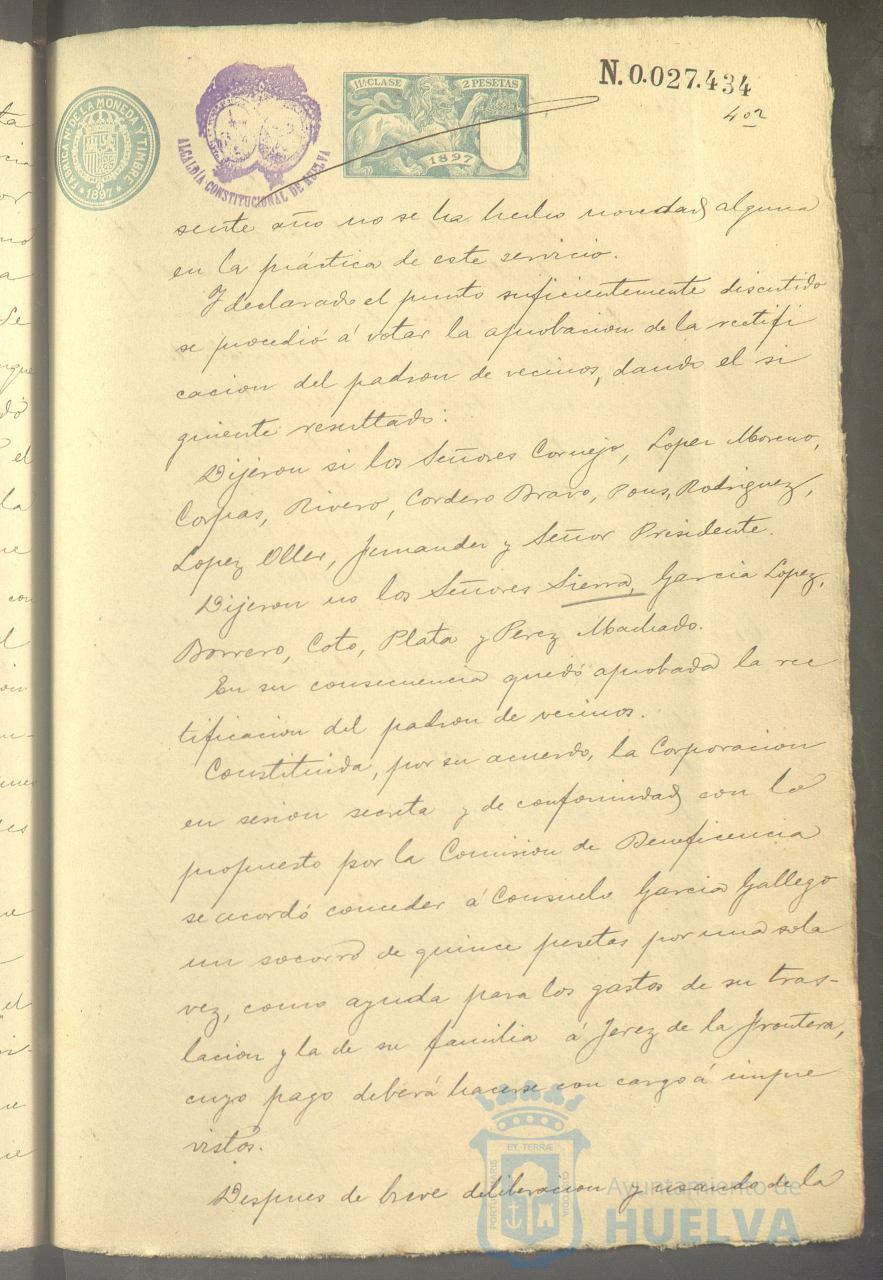 FABRICA Nl. DE LA MONEDA Y TIMBRE
1897
ALCALDÍA CONSTITUCIONAL DE HUELVA
11ª CLASE
2 PESETAS
1897
N.0.027.434
sente año no se ha hecho novedad alguna
en la práctica de este servicio.
Y declarado el punto suficientemente discutido
se procedió á votar la aprobacion de la rectifi
cacion del padron de vecinos, dando el si
guiente resultado:
Dijeron si los Señores Cornejo, Lopez Moreno,
Corpas, Rivero, Cordero Bravo, Pons, Rodriguez,
Lopez Oller, Fernandez y Señor Presidente.
Dijeron no los Señores Sierra, Garcia Lopez,
Borrero, Coto, Plata y Perez Machado.
En su consecuencia quedó aprobada la rec
tificacion del padron de vecinos.
Constituida, por su acuerdo, la Corporacion
en sesion secreta y de conformidad con lo
propuesto por la Comision de Beneficencia
se acordó conceder á Consuelo Garcia Gallego
un socorro de quince pesetas por una sola
vez, como ayuda para los gastos de su tras-
lacion y la de su familia á Jerez de la Frontera,
cuyo pago deberá hacerse con cargo á impre
vistos.
Despues de breve deliberacion y usando de la
PORTUS MARIS
ET TERRÆ
CUSTODIA
Ayuntamiento de
HUELVA